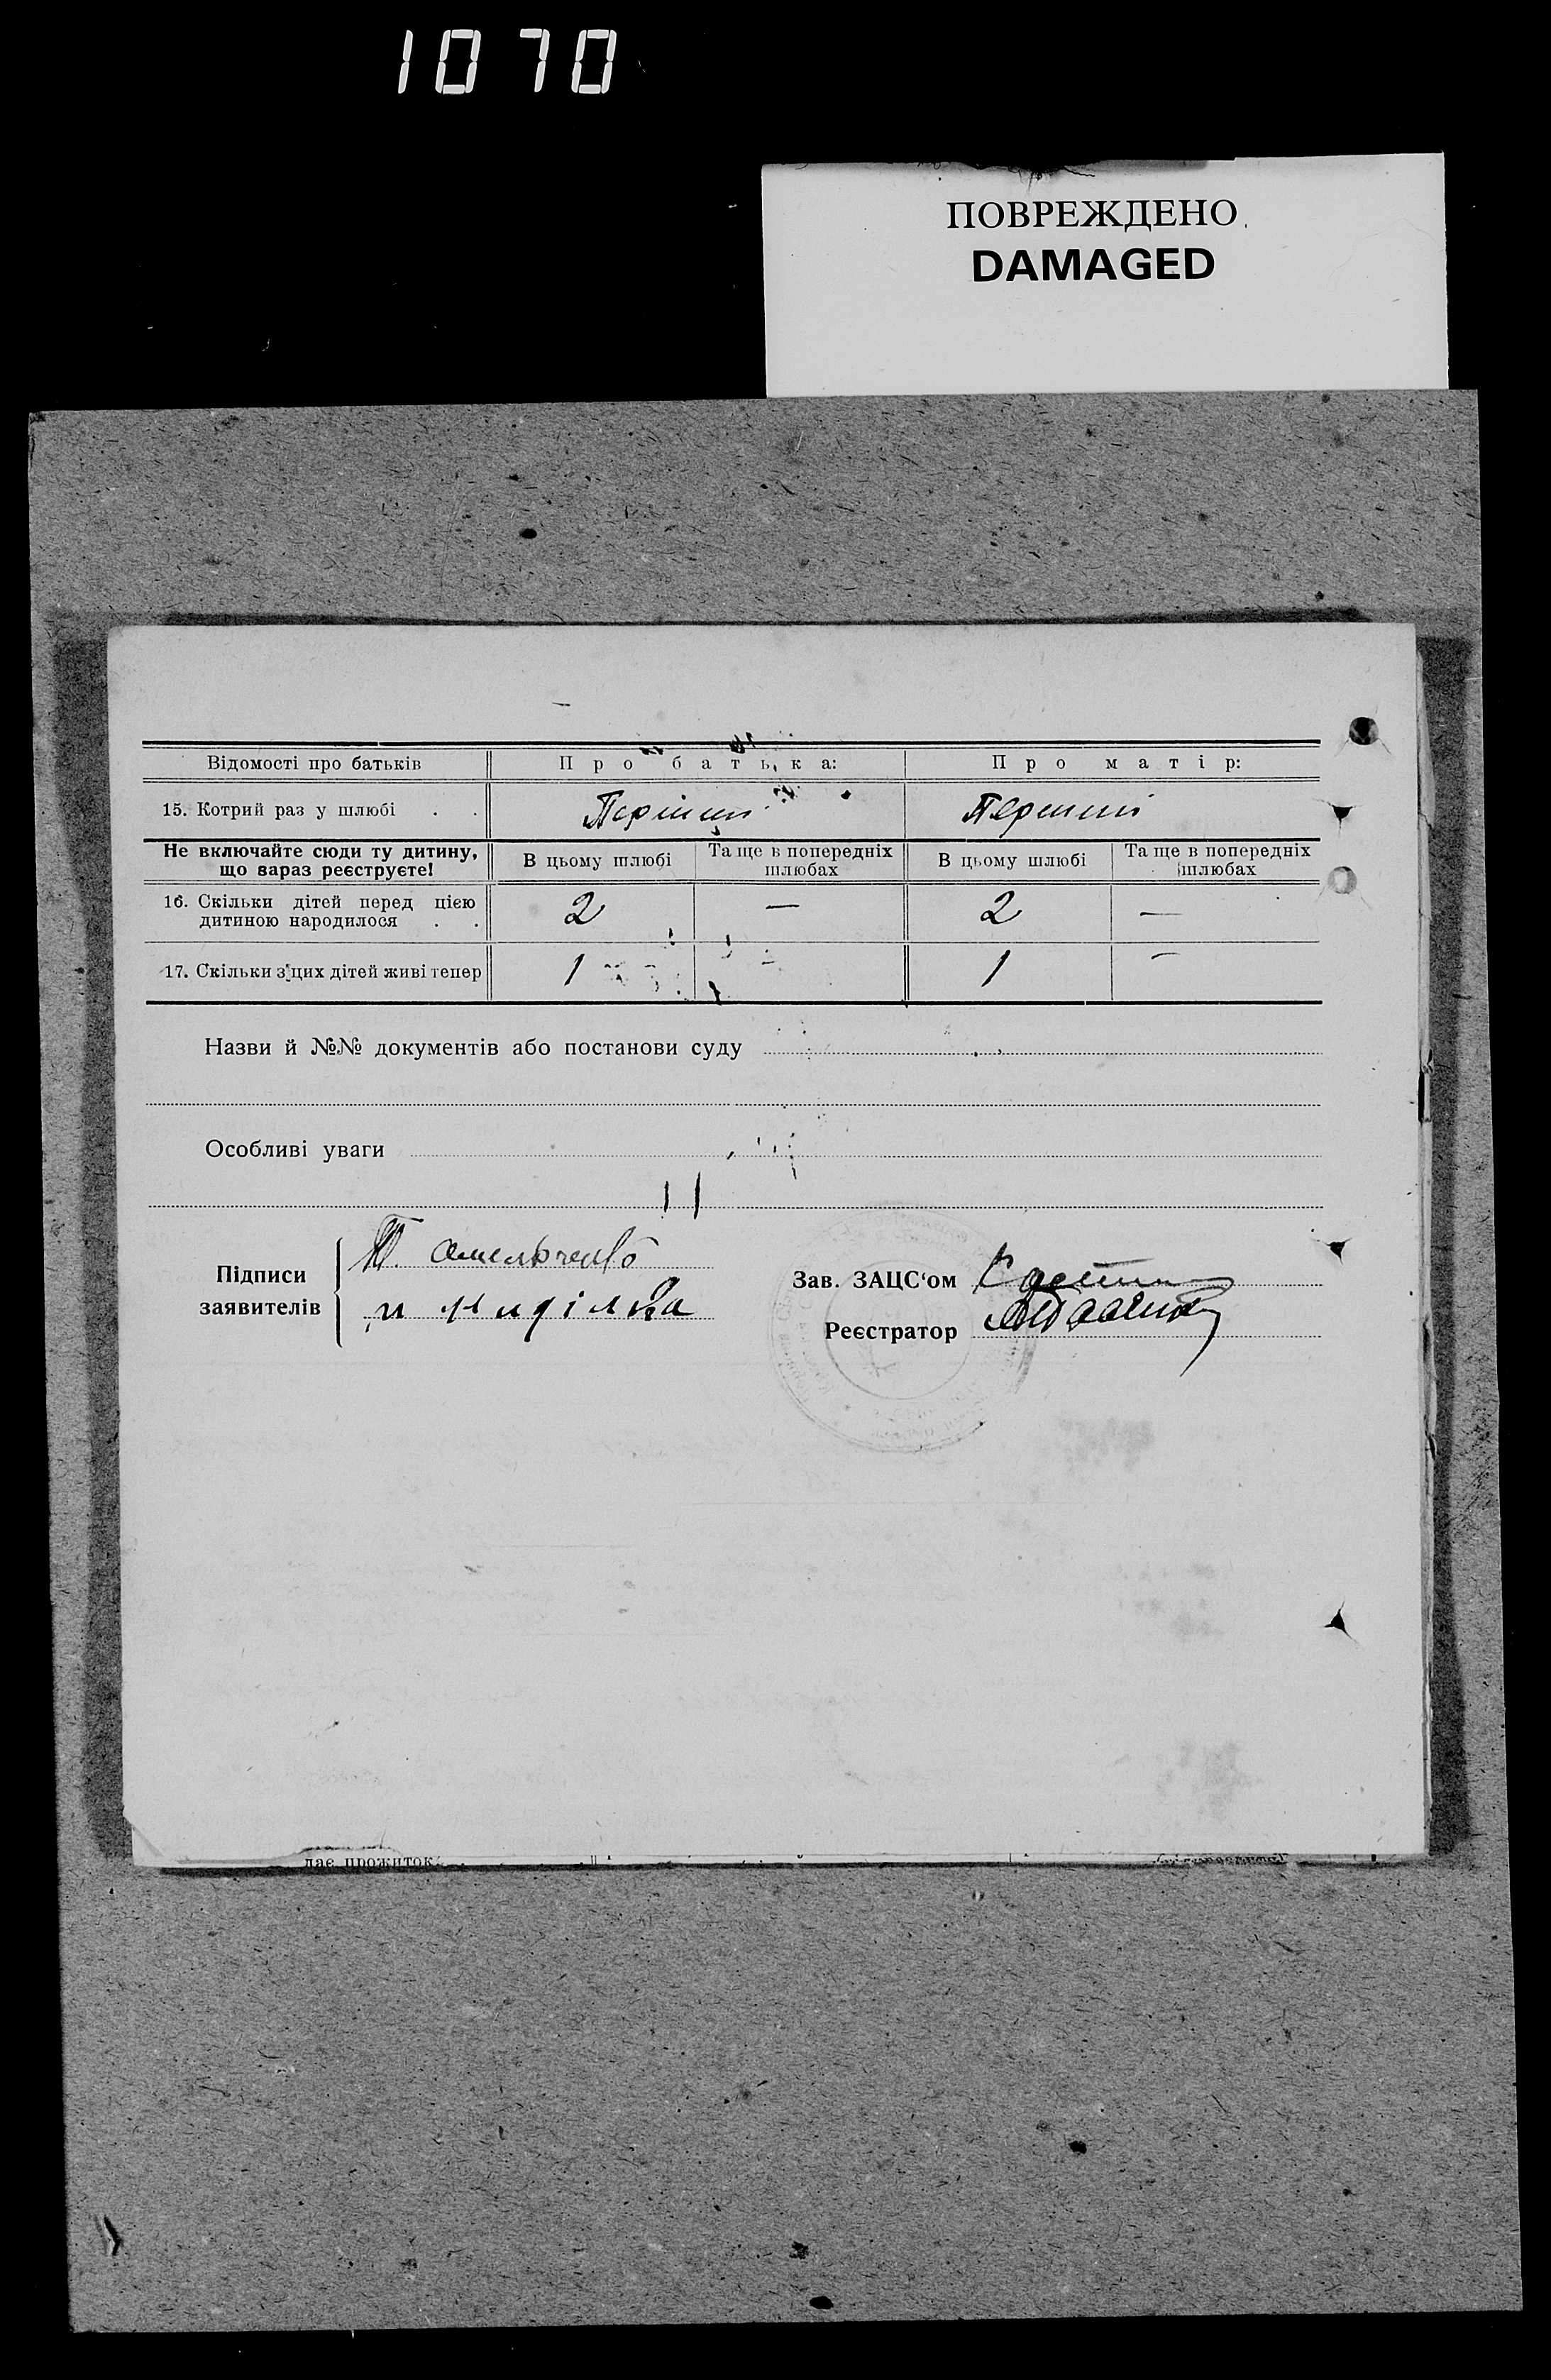 1070
ПОВРЕЖДЕНО
DAMAGED
Відомості про батьків Про батька: Про матір:
15. Котрий раз у шлюбі . . Перший Перший
Не включайте сюди ту дитину, що вараз реєструєте! В цьому шлюбі Та ще в попередніх шлюбах В цьому шлюбі Та ще в попередніх шлюбах
16. Скільки дітей перед цією
дитиною народилося . . 2 — 2 —
17. Скільки з цих дітей живі тепер 1 — 1 —
Назви й №№ документів або постанови суду
Особливі уваги
Підписи
заявителів
Т. Омельченко
Зав. ЗАЦС‘ом
Реєстратор
дає прожиток